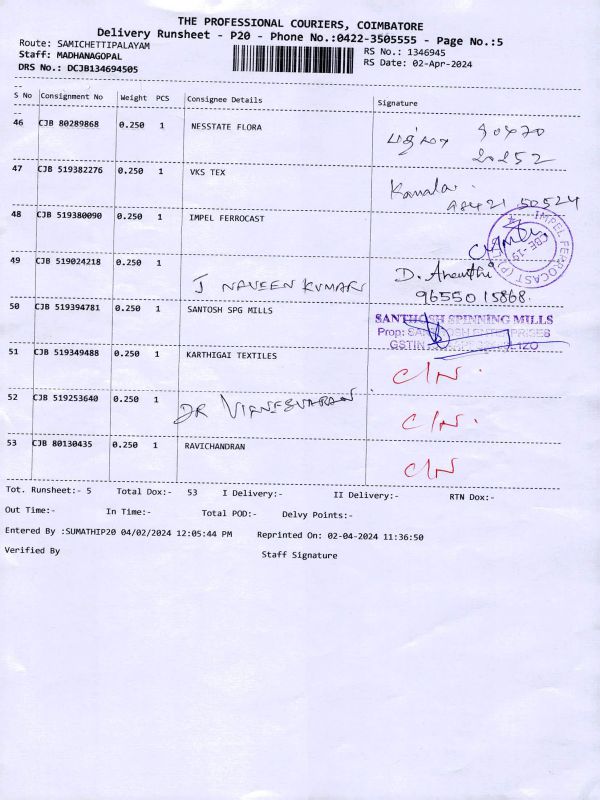 THE PROFESSIONAL COURIERS, COIMBATORE
Delivery Runsheet - P20 - Phone No.:0422-3505555 - Page No.:5
Route: SAMICHETTIPALAYAM
RS No.: 1346945
Staff: MADHANAGOPAL
RS Date: 02-Apr-2024
DRS No.: DCJB134694505
S No Consignment No Weight PCS Consignee Details Signature
46 CJB 80289868 0.250 1 NESSTATE FLORA
90470
20252
47 CJB 519382276 0.250 1 VKS TEX Kamala
98421 50524
48 CJB 519380090 0.250 1 IMPEL FERROCAST
IMPEL FERROCAST (P) LTD
CBE-19
49 CJB 519024218 0.250 1 J NAVEEN KUMAR D. Ananthi
9655015868
50 CJB 519394781 0.250 1 SANTOSH SPG MILLS SANTHOSH SPINNING MILLS
Prop:
GSTIN
51 CJB 519349488 0.250 1 KARTHIGAI TEXTILES C/N
52 CJB 519253640 0.250 1 DR VIGNESVARAN C/N
53 CJB 80130435 0.250 1 RAVICHANDRAN C/N
Tot. Runsheet:- 5 Total Dox:- 53 I Delivery:- II Delivery:- RTN Dox:-
Out Time:- In Time:- Total POD:- Delvy Points:-
Entered By :SUMATHIP20 04/02/2024 12:05:44 PM Reprinted On: 02-04-2024 11:36:50
Verified By Staff Signature